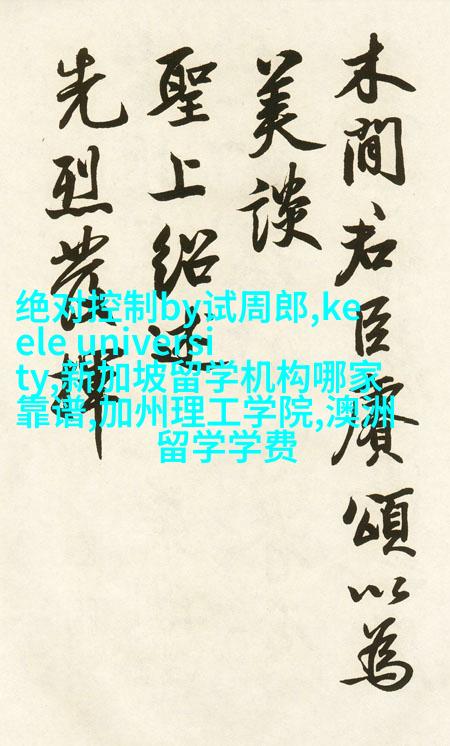 木間君臣賡頌以為
美談
聖上紹述
先烈發揮
绝对控制by试周郎,ke
ele universi
ty,新加坡留学机构哪家
靠谱,加州理工学院,澳洲
留学学费